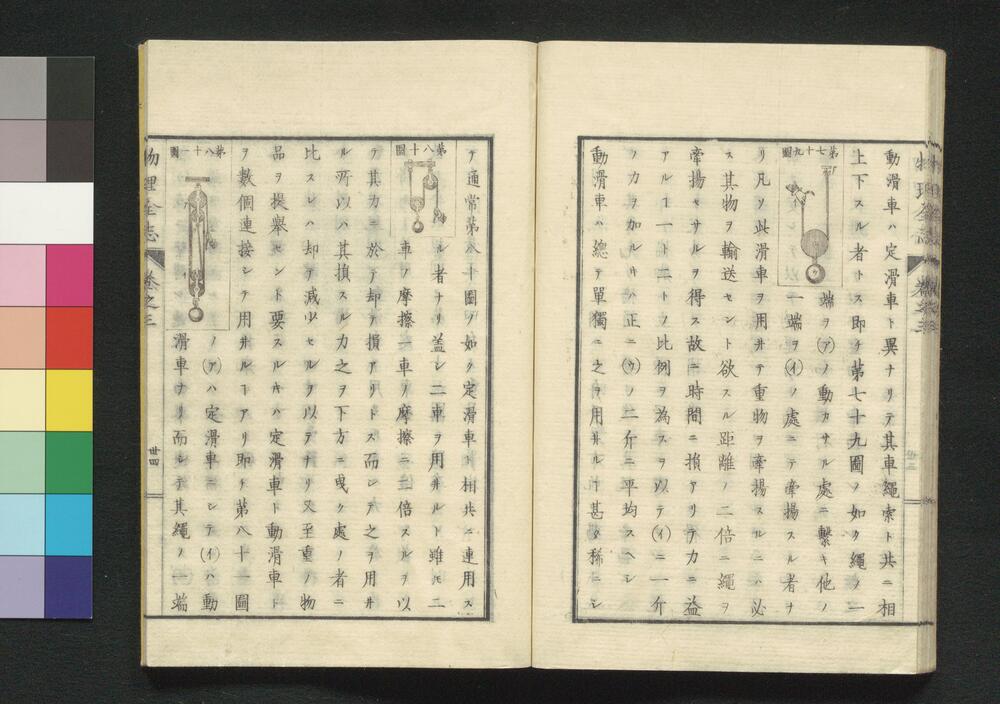 動滑車ハ定滑車ト異ナリテ其車繩索ト共ニ相
上下スル者トス即チ第七十九圖ノ如ク繩ノ一
第七十九圖
端ヲ(ア)ノ動カサル處ニ繫キ他ノ
一端ヲ(イ)ノ處ニテ牽揚スル者ナ
リ凡ソ此滑車ヲ用井テ重物ヲ牽揚スルニハ必
ス其物ヲ輸送セント欲スル距離ノ二倍ニ繩ヲ
牽揚セサルヲ得ス故ニ時間ニ損アリテ力ニ益
アルヿ一ト二トノ比例ヲ為スヲ以テ(イ)ニ一介
ノ力ヲ加ルキハ正ニ(ウ)ノ二介ニ平均スヘシ
動滑車ハ總テ單獨ニ之ヲ用井ルヿ甚タ稀ニシ
テ通常第八十圖ノ如ク定滑車ト相共ニ連用ス
第八十圖
ル者ナリ蓋シ二車ヲ用井ルト雖モ二
車ノ摩擦一車ノ摩擦ニ二倍スルヲ以
テ其力ニ於テ却テ損アリトス而シテ之ヲ用井
ル所以ハ其損スル力之ヲ下方ニ曵ク處ノ者ニ
比スレハ却テ減少セルヲ以テナリ又至重ノ物
品ヲ提擧セント要スルキハ定滑車ト動滑車ト
ヲ數個連接シテ用井ルヿアリ即チ第八十一圖
第八十一圖
ノ(ア)ハ定滑車ニシテ(イ)ハ動
滑車ナリ而シテ其繩ノ一端
物理全志 卷之三 卄四